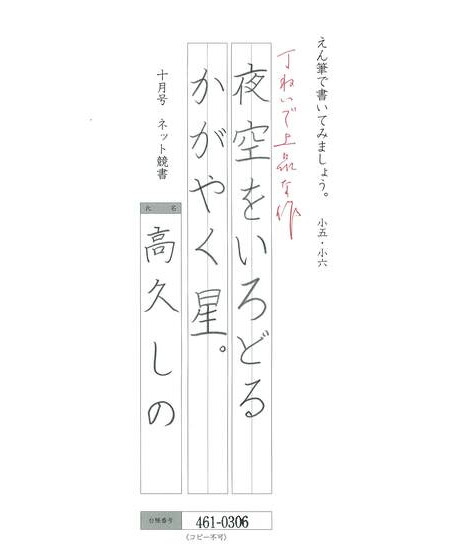 えん筆で書いてみましょう。 小五・小六
丁ねいで上品な作
夜空をいろどる
かがやく星。
十月号 ネット競書
氏 名
高久しの
台帳番号 461-0306
(コピー不可)